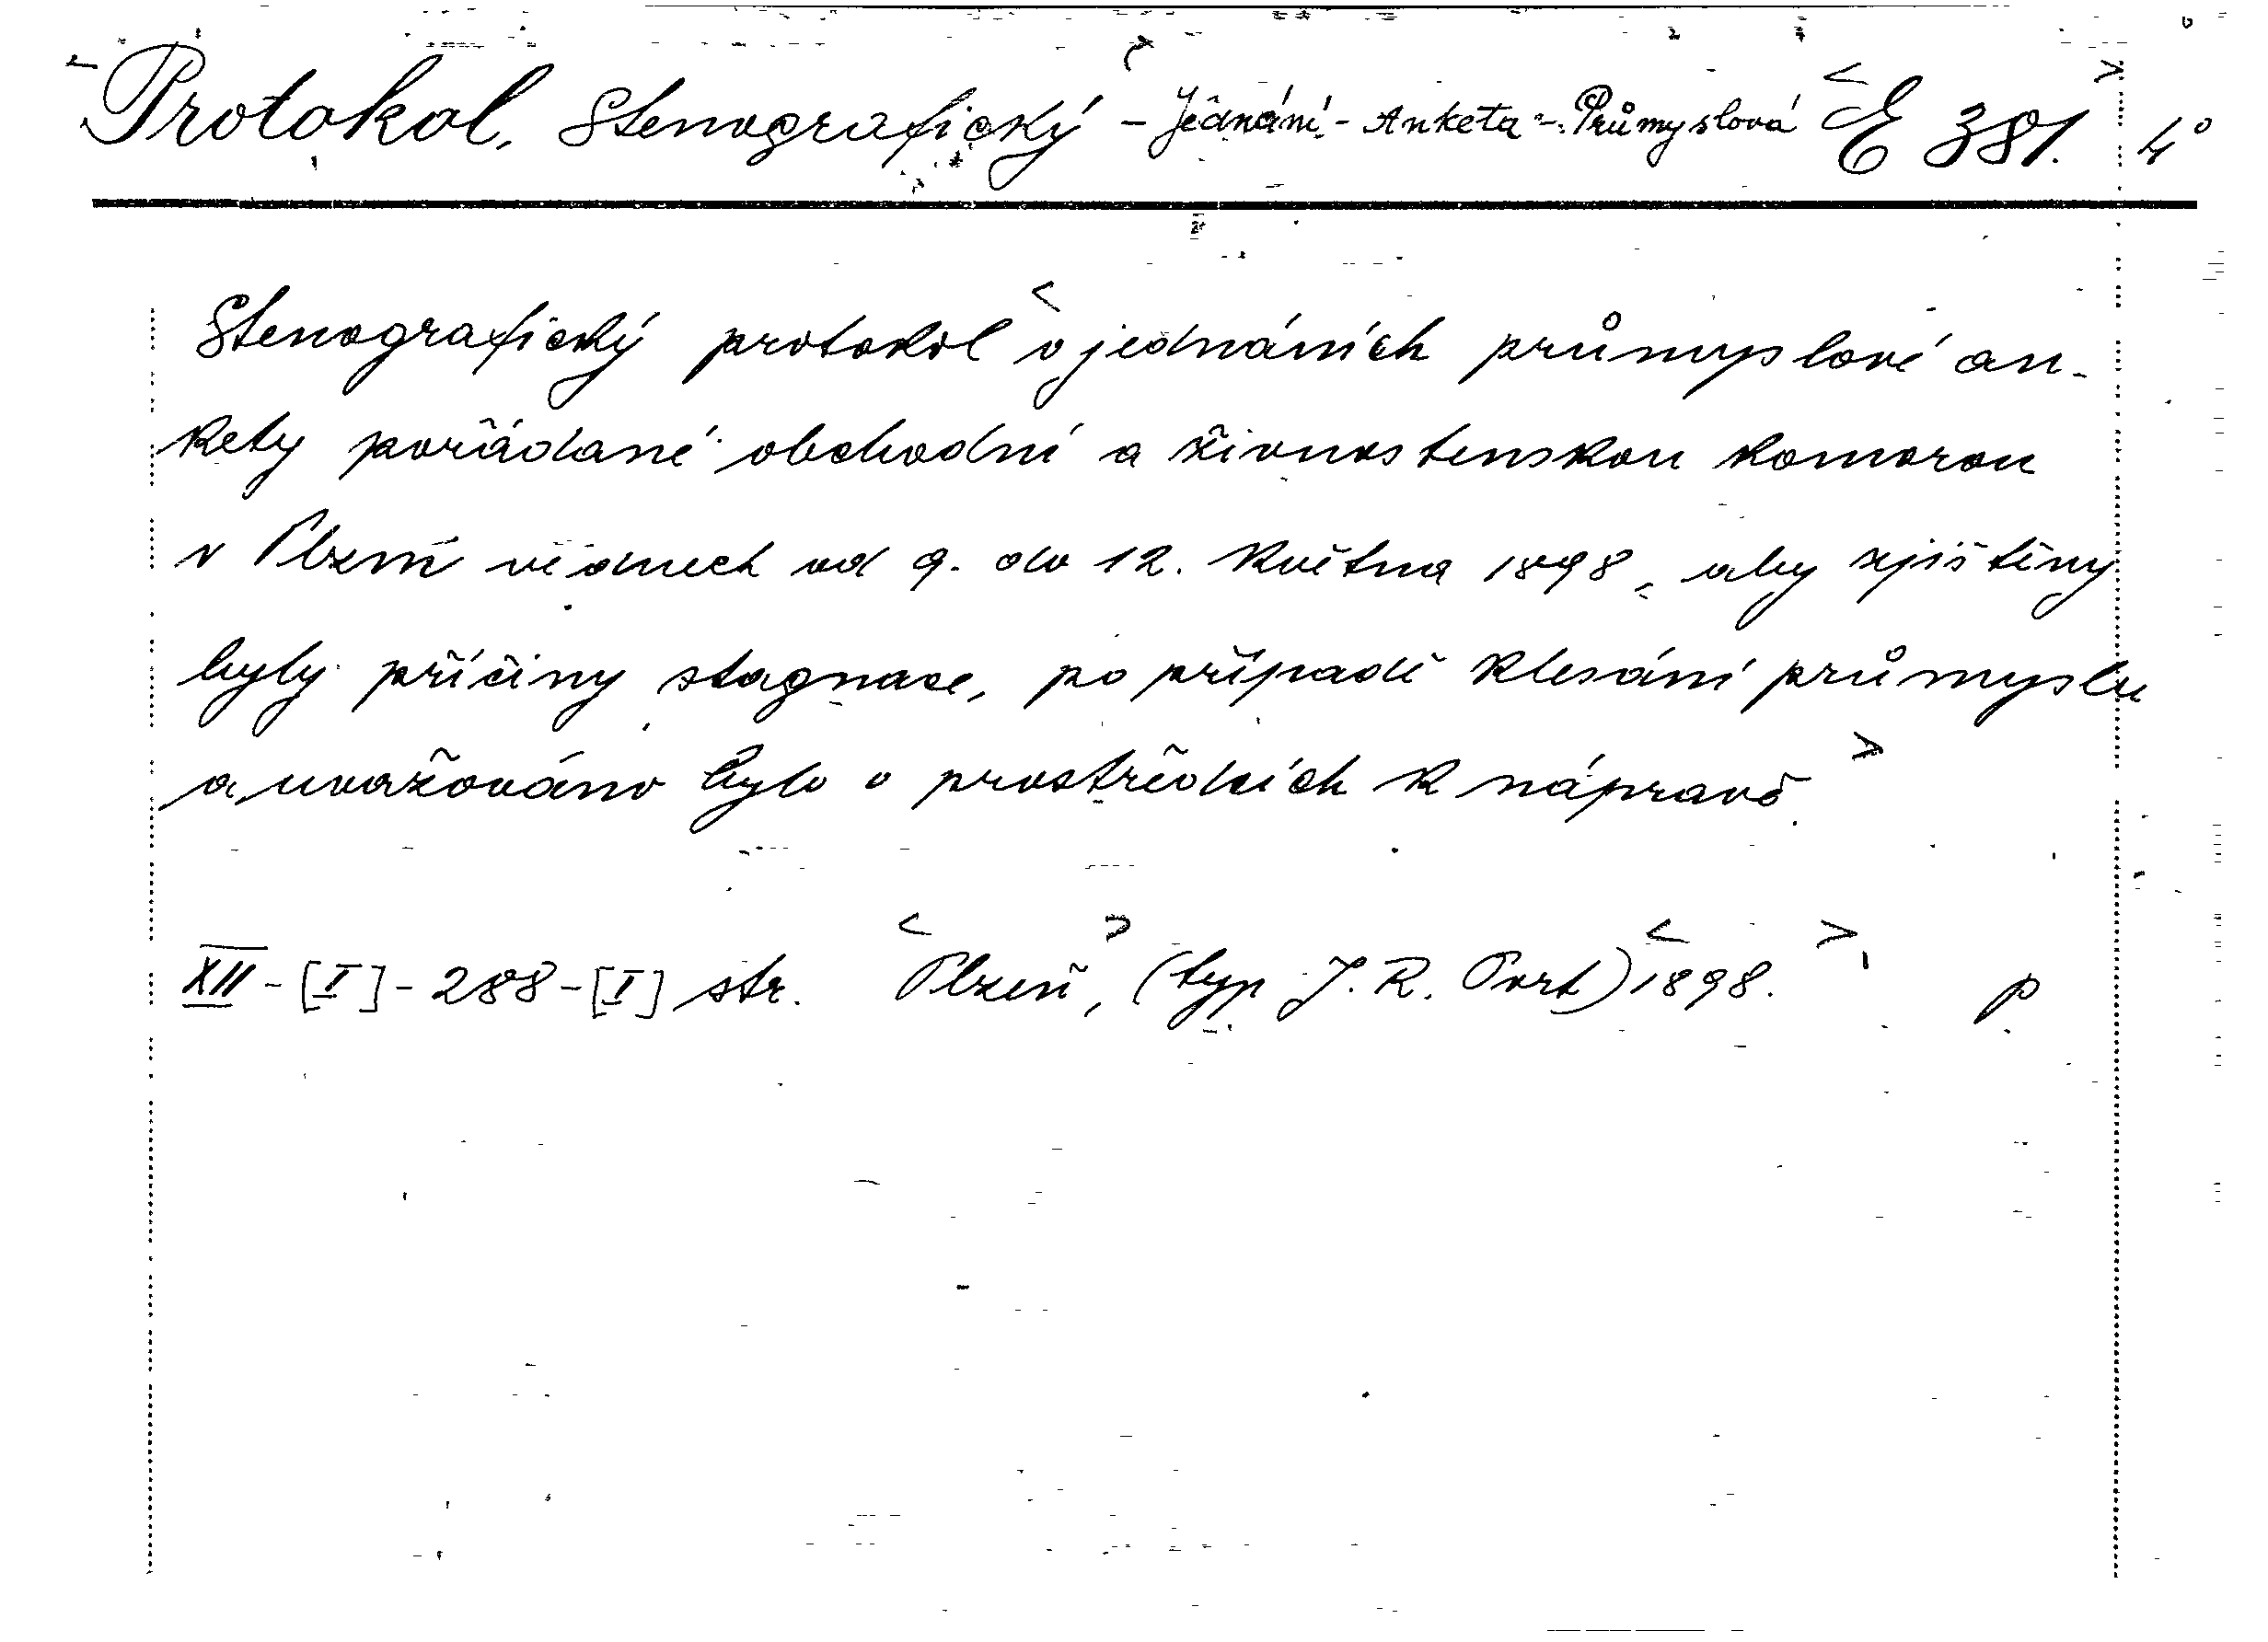 Protokol, Stenografický - Jednání - Anketa - Průmyslová E 381. 4°
Stenografický protokol o jednáních průmyslové an-
kety pořádané obchodní a živnostenskou komorou
v Plzni ve dnech od 9. do 12. května 1898, aby zjištěny
byly příčiny stagnace, po případě klesání průmyslu
a uvažováno bylo o prostředcích k nápravě.
XII - [I] - 288 - [I] str. Plzeň, (typ J. R. Port) 1898. p